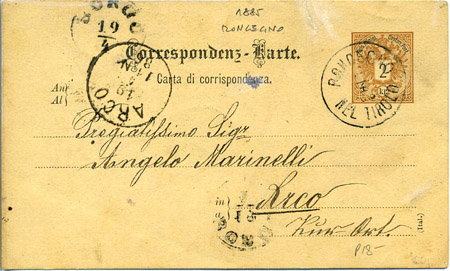 BORGO
19
4
1885
RONCEGNO
Correspondenz-Karte.
Carta di corrispondenza.
ARCO
RONCEGNO
NEL TIROLO
2
An
Al
Pregiatissimo Sigr
Angelo Marinelli
in Arco
in
Kur Ort.
P18-